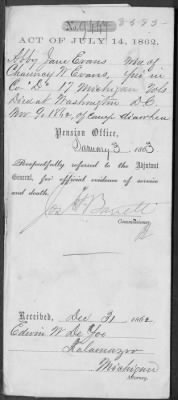 ACT OF JULY 14, 1862.
Abby Jane Evans Wid of
Chauncy W. Evans,
Co "D" 17 Michigan Vols
Died at Washington D.C.
Nov 9, 1862, of camp diarrhea
Pension Office,
January 3 1863
Respectfully referred to the Adjutant
General, for official evidence of service
and death.
Jos H Barrett
Commissioner.
Received, Dec 31 1862
Edwin W De Yoe
Kalamazoo
Michigan
Attorney.